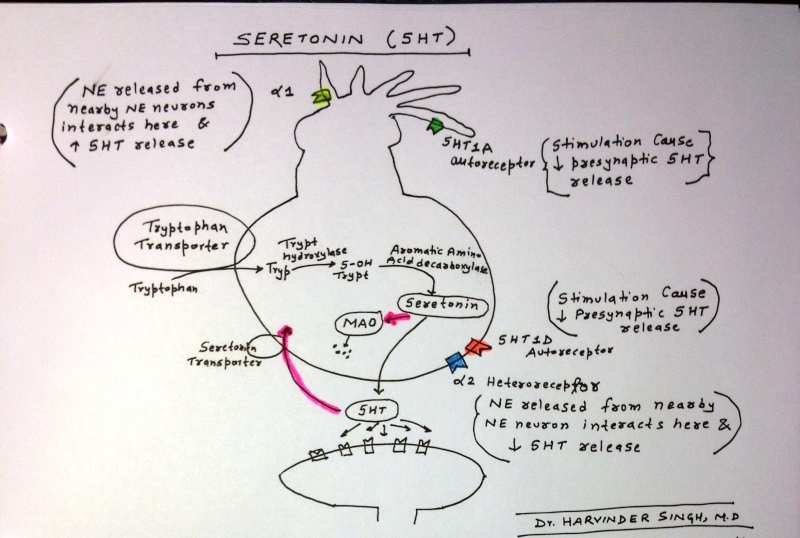 SERETONIN (5HT)
NE released from
nearby NE neurons
interacts here &
↑ 5HT release
α1
5HT1A
autoreceptor
Stimulation Cause
↓ presynaptic 5HT
release
Tryptophan
Transporter
Tryptophan
Tryp
Trypt
hydroxylase
5-OH
Trypt
Aromatic Amino
Acid decarboxylase
Seretonin
MAO
Seretonin
Transporter
Stimulation Cause
↓ Presynaptic 5HT
release
5HT1D
Autoreceptor
α2 Heteroreceptor
NE released from nearby
NE neuron interacts here &
↓ 5HT release
5HT
Dr. HARVINDER SINGH, M.D